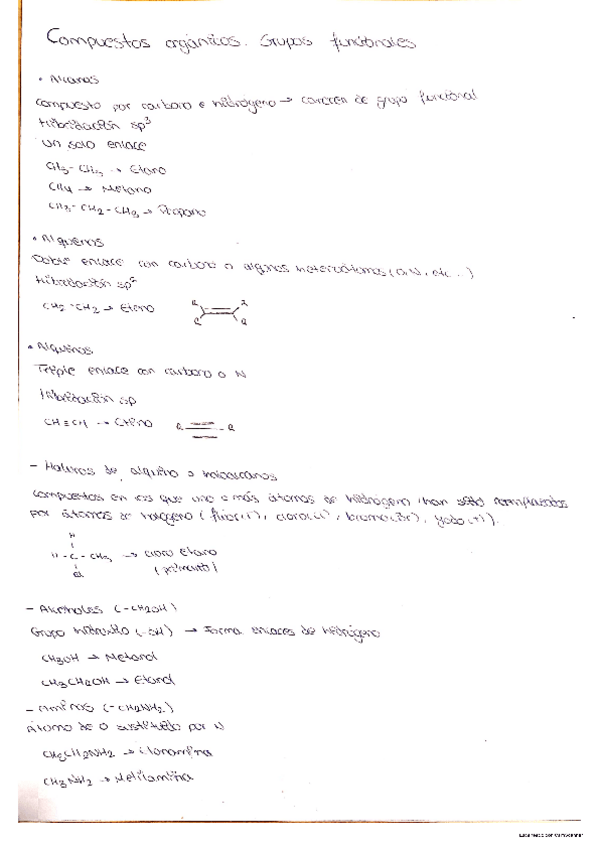 Compuestos orgánicos. Grupos funcionales
• Alcanos
Compuesto por carbono e hidrógeno → carecen de grupo funcional
Hibridación sp³
Un solo enlace
CH3 - CH3 → Etano
CH4 → Metano
CH3 - CH2 - CH3 → Propano
• Alquenos
Doble enlace con carbono o algunos heteroátomos (O, N, etc...)
Hibridación sp²
CH2 - CH2 → Eteno
R R
R R
• Alquinos
Triple enlace con carbono o N
Hibridación sp
CH ≡ CH → Etino R R
- Haluros de alquino o haloalcanos
Compuestos en los que uno o más átomos de hidrógeno han sido reemplazados
por átomos de halógeno (fluor(F), cloro(Cl), bromo(Br), yodo(I)).
H
H - C - CH3 → cloro etano
Cl
- Alcoholes (-CH2OH)
Grupo hidroxilo (-OH) → Forma enlaces de hidrógeno
CH3OH → Metanol
CH3CH2OH → Etanol
- Aminas (-CH2NH2)
Átomo de O sustituido por N
CH3CH2NH2 → Etanamina
CH3NH2 → Metilamina